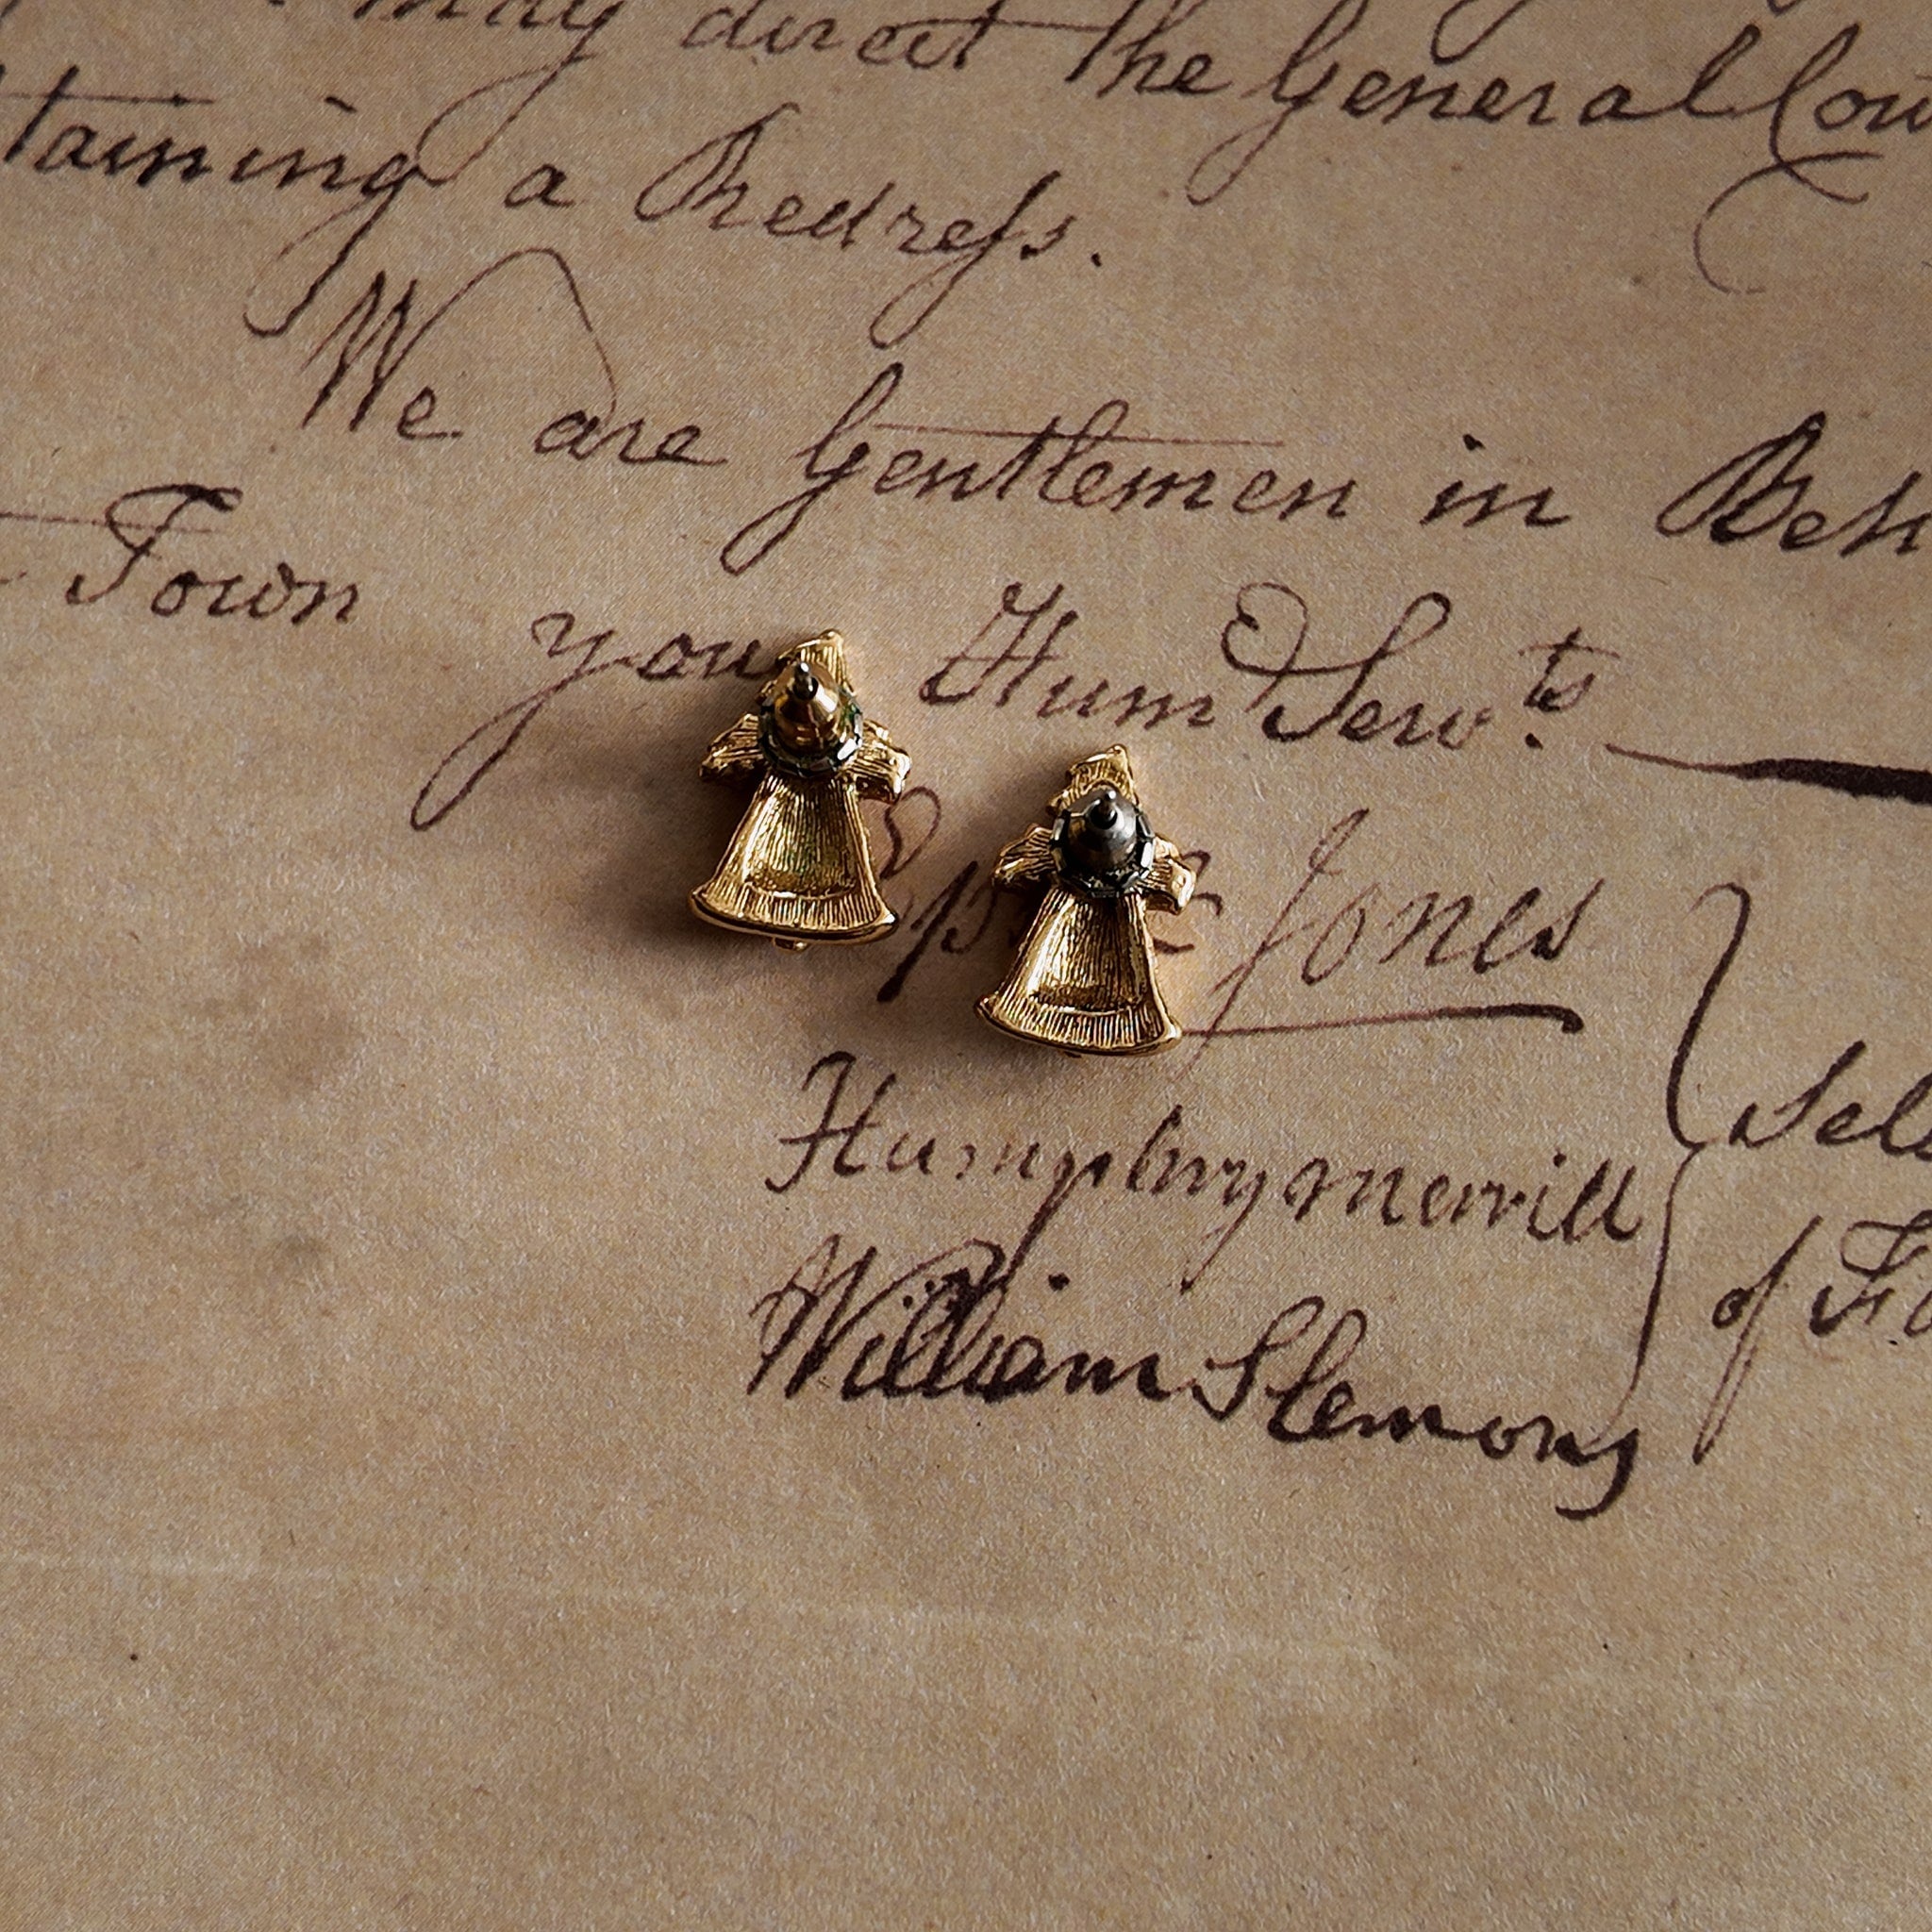 may direct the General Cou
taining a Redreſs.
We are Gentlemen in Beh
Town you Hum Serv.ts
Jones
Humphry merrill
William Slemons
Sele
of